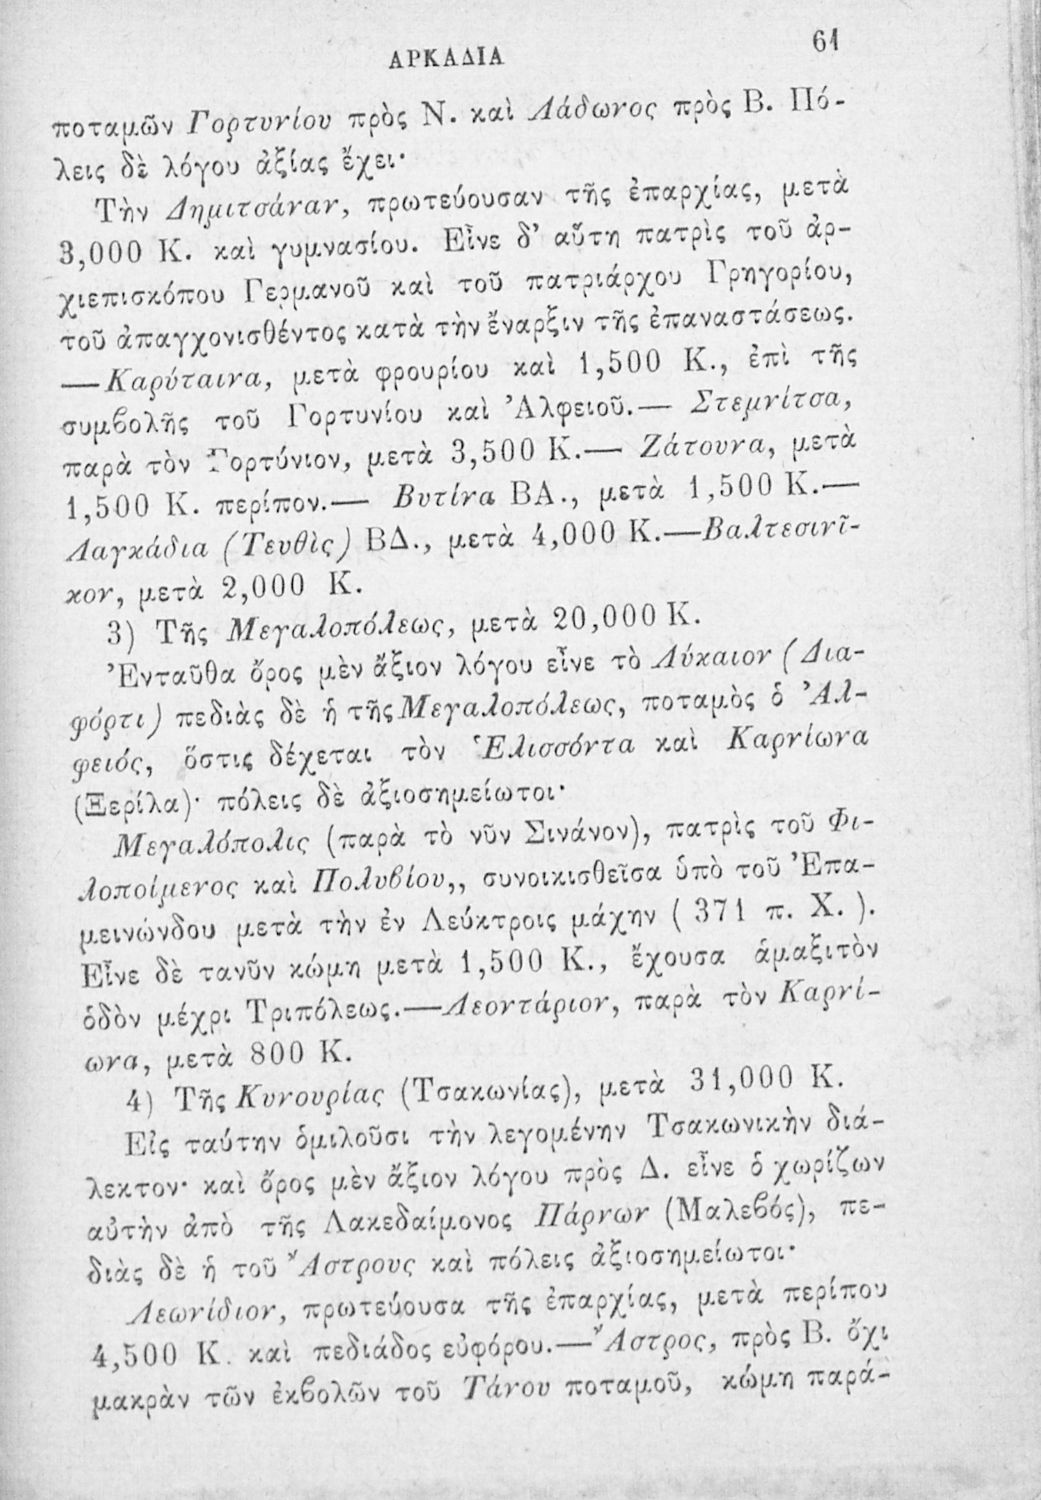 ΑΡΚΑΔΙΑ 61
ποταμῶν Γορτυνίου πρὸς Ν. καὶ Λάδωνος πρὸς Β. Πό-
λεις δὲ λόγου ἀξίας ἔχει·
Τὴν Δημιτσάναν, πρωτεύουσαν τῆς ἐπαρχίας, μετὰ
3,000 Κ. καὶ γυμνασίου. Εἶνε δ’ αὕτη πατρὶς τοῦ ἀρ-
χιεπισκόπου Γερμανοῦ καὶ τοῦ πατριάρχου Γρηγορίου,
τοῦ ἀπαγχονισθέντος κατὰ τὴν ἔναρξιν τῆς ἐπαναστάσεως.
—Καρύταινα, μετὰ φρουρίου καὶ 1,500 Κ., ἐπὶ τῆς
συμβολῆς τοῦ Γορτυνίου καὶ Ἀλφειοῦ.— Στεμνίτσα,
παρὰ τὸν Γορτύνιον, μετὰ 3,500 Κ.— Ζάτουνα, μετὰ
1,500 Κ. περίπον.— Βυτίνα ΒΑ., μετὰ 1,500 Κ.—
Λαγκάδια (Τευθὶς) ΒΔ., μετὰ 4,000 Κ.—Βαλτεσινῖ-
κον, μετὰ 2,000 Κ.
3) Τῆς Μεγαλοπόλεως, μετὰ 20,000 Κ.
Ἐνταῦθα ὄρος μὲν ἄξιον λόγου εἶνε τὸ Λύκαιον (Δια-
φόρτι) πεδιὰς δὲ ἡ τῆς Μεγαλοπόλεως, ποταμὸς ὁ Ἀλ-
φειός, ὅστις δέχεται τὸν Ἑλισσόντα καὶ Καρνίωνα
(Ξερίλα)· πόλεις δὲ ἀξιοσημείωτοι·
Μεγαλόπολις (παρὰ τὸ νῦν Σινάνον), πατρὶς τοῦ Φι-
λοποίμενος καὶ Πολυβίου,, συνοικισθεῖσα ὑπὸ τοῦ Ἐπα-
μεινώνδου μετὰ τὴν ἐν Λεύκτροις μάχην ( 371 π. Χ. ).
Εἶνε δὲ τανῦν κώμη μετὰ 1,500 Κ., ἔχουσα ἁμαξιτὸν
ὁδὸν μέχρι Τριπόλεως.—Λεοντάριον, παρὰ τὸν Καρνί-
ωνα, μετὰ 800 Κ.
4) Τῆς Κυνουρίας (Τσακωνίας), μετὰ 31,000 Κ.
Εἰς ταύτην ὁμιλοῦσι τὴν λεγομένην Τσακωνικὴν διά-
λεκτον· καὶ ὄρος μὲν ἄξιον λόγου πρὸς Δ. εἶνε ὁ χωρίζων
αὐτὴν ἀπὸ τῆς Λακεδαίμονος Πάρνων (Μαλεβός), πε-
διὰς δὲ ἡ τοῦ Ἄστρους καὶ πόλεις ἀξιοσημείωτοι·
Λεωνίδιον, πρωτεύουσα τῆς ἐπαρχίας, μετὰ περίπου
4,500 Κ. καὶ πεδιάδος εὐφόρου.—Ἄστρος, πρὸς Β. ὄχι
μακρὰν τῶν ἐκβολῶν τοῦ Τάνου ποταμοῦ, κώμη παρά-